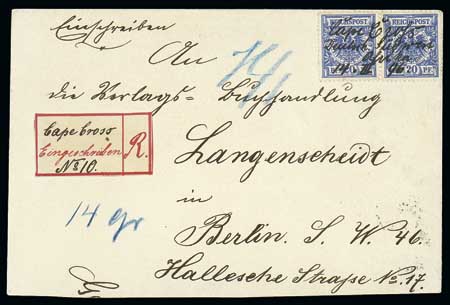 Einschreiben
REICHSPOST REICHSPOST
Cape Cross
20 PF.
An
die Verlags- Buchhandlung
Cape Cross
Eingeschrieben R.
No 10.
Langenscheidt
in
14 gr
Berlin. S. W. 46.
Hallesche Straße No. 17.